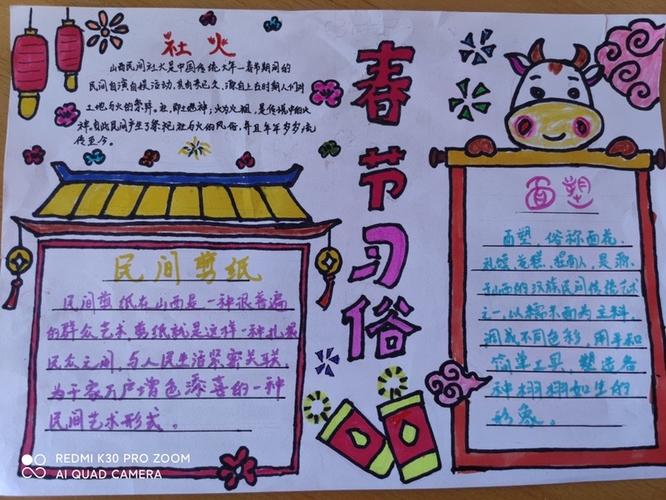 社火
山西民间社火是中国传统大年一春节期间的
民间自演自娱活动,其由来已久,源自上古时期人们对
土地与火的祭拜。社,即土地神;火为火祖,是传说中的火
神,自此民间产生了祭祀社与火的风俗,并且年年岁岁流
传至今。
春节习俗
民间剪纸
民间剪纸在山西是一种很普遍
的群众艺术,剪纸就是这样一种扎根
民众之间,与人民生活紧密关联,
为千家万户增色添喜的一种
民间艺术形式。
面塑
面塑,俗称面花、
礼馍、花糕、捏面人,是源
于山西的汉族民间传统艺术
之一,以糯米面为主料,
调成不同色彩,用手和
简单工具,塑造各
种栩栩如生的
形象。
REDMI K30 PRO ZOOM
AI QUAD CAMERA